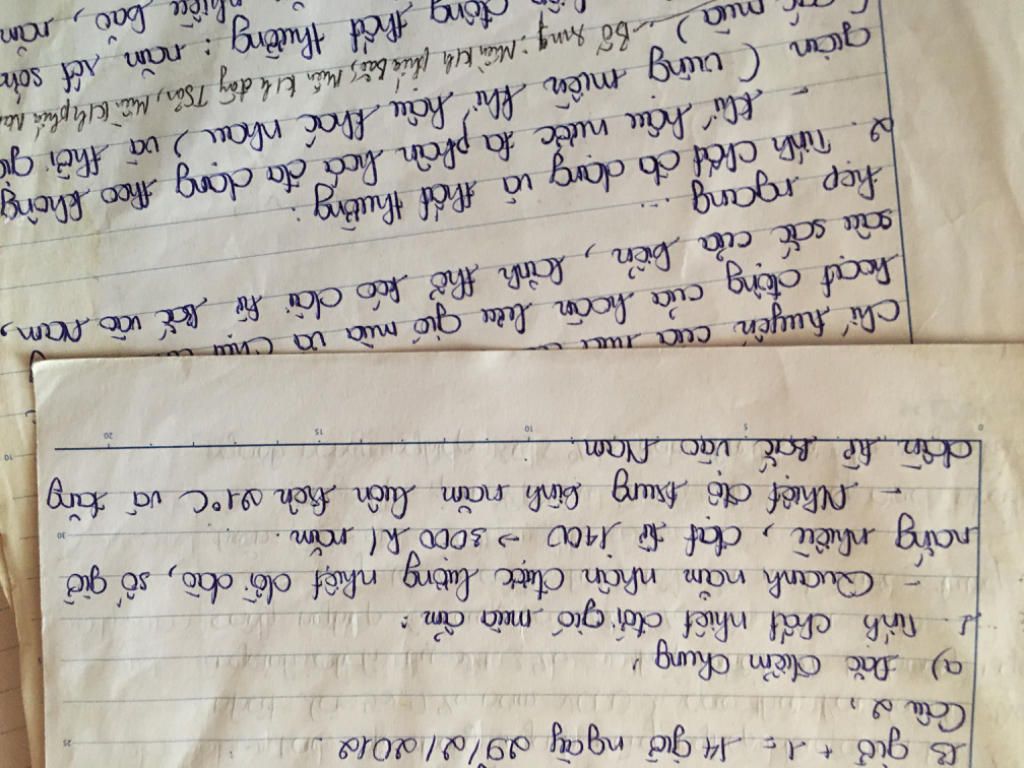 13 giờ + 1 = 14 giờ ngày 29/2/2012
Câu 2.
a) Đặc điểm chung
1. Tính chất nhiệt đới gió mùa ẩm:
- Quanh năm nhận được lượng nhiệt dồi dào, số giờ
nắng nhiều, đạt từ 1400 → 3000 h/ năm.
- Nhiệt độ trung bình năm luôn trên 21°C và tăng
dần từ Bắc vào Nam.
chí tuyến của
hoạt động của hoàn lưu gió mùa và chịu
sâu sắc của biển, hình thể kéo dài từ Bắc vào Nam,
hẹp ngang...
2. Tính chất đa dạng và thất thường:
- Khí hậu nước ta phân hoá đa dạng theo không
gian (vùng miền khí hậu khác nhau) và thời gi
Bổ sung: Miền KH phía bắc, Miền KH đông TSơn, Miền KH phía Na
mùa)
động thất thường: năm rét sớm
nhiều bão, năm